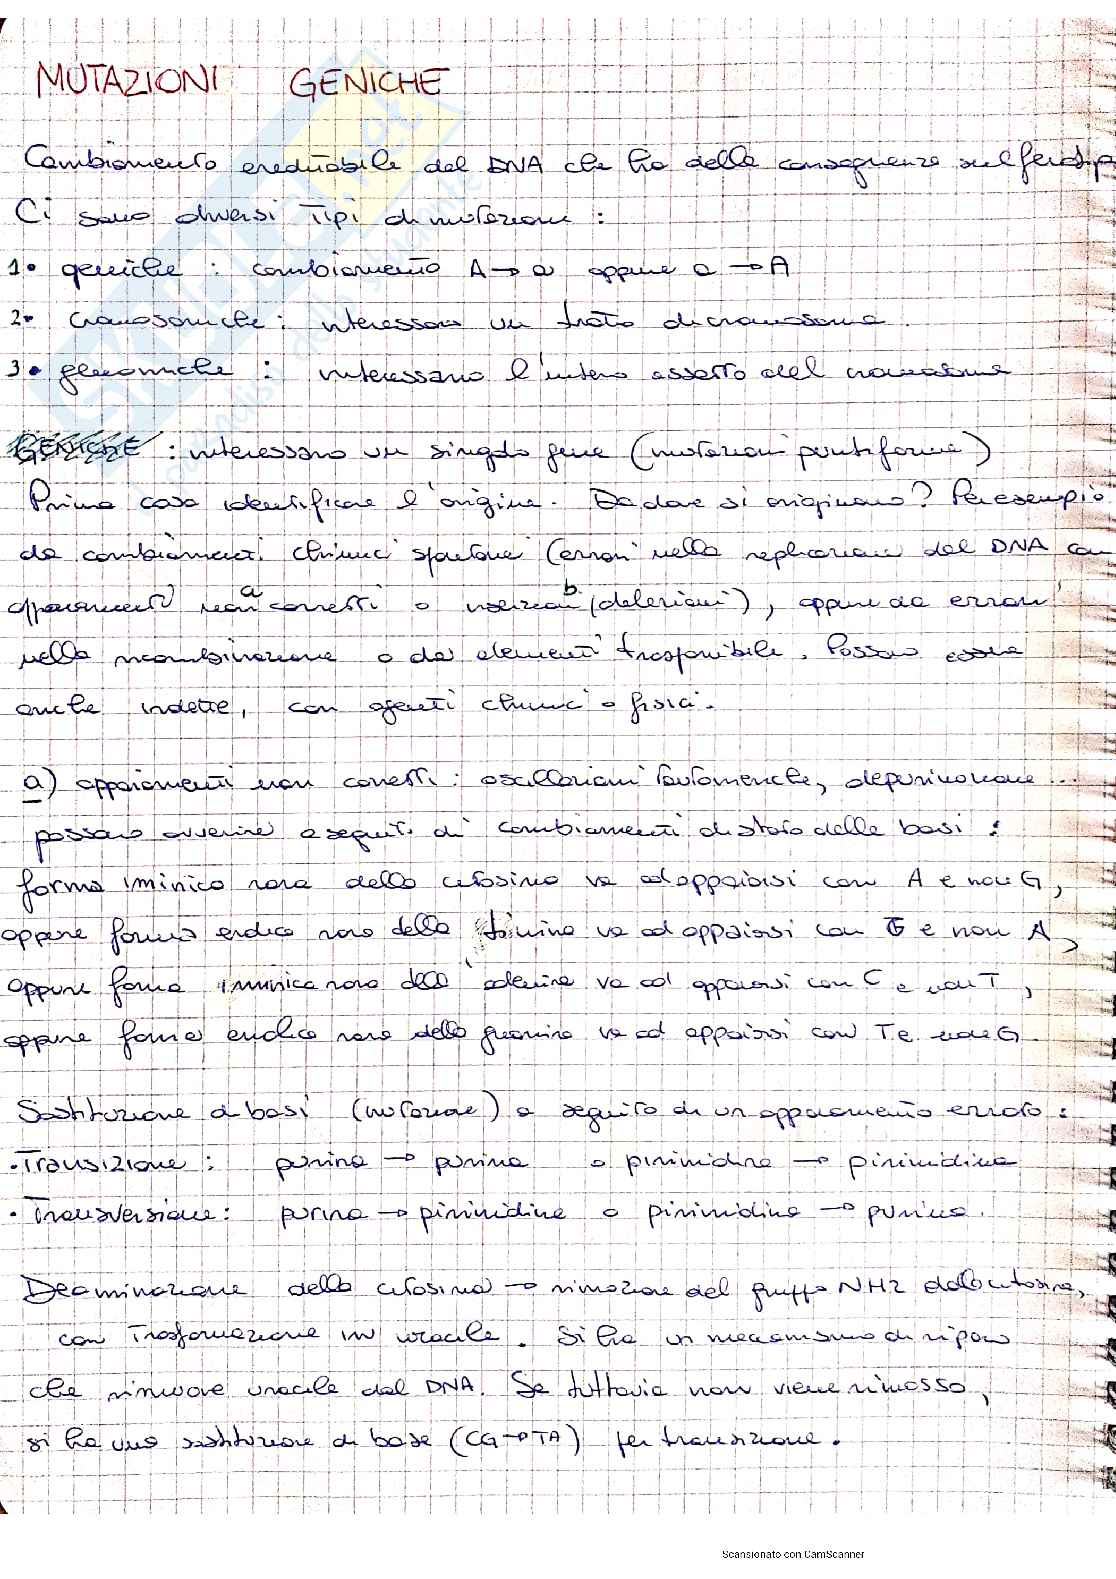 MUTAZIONI GENICHE
Cambiamento ereditabile del DNA che ha delle conseguenze sul fenotip
Ci sono diversi tipi di mutazione :
1• geniche : cambiamento A→a oppure a→A
2• cromosomiche : interessano un tratto di cromosoma .
3• genomiche : interessano l'intero assetto del cromosoma
GENICHE : interessano un singolo gene (mutazioni puntiformi)
Prima cosa identificare l'origine. Da dove si originano? Per esempio
da cambiamenti chimici spontanei (errori nella replicazione del DNA con
appaiamenti non corretti a o inserzioni b (delezioni), oppure da errori
nella ricombinazione o da elementi trasponibile. Possono essere
anche indotte, con agenti chimici o fisici.
a) appaiamenti non corretti : oscillazioni tautomeriche, depurinazione ...
possono avvenire a seguito di cambiamenti di stato delle basi :
forma iminica rara della citosina va ad appaiarsi con A e non G,
oppure forma enolica rara della timina va ad appaiarsi con G e non A,
oppure forma iminica rara dell' adenina va ad appaiarsi con C e non T,
oppure forma enolica rara della guanina va ad appaiarsi con T e non G.
Sostituzione di basi (mutazione) a seguito di un appaiamento errato :
• Transizione : purina → purina o pirimidina → pirimidina
• Transversione : purina → pirimidina o pirimidina → purina.
Deaminazione della citosina → rimozione del gruppo NH2 dalla citosina,
con trasformazione in uracile. Si ha un meccanismo di riparo
che rimuove uracile dal DNA. Se tuttavia non viene rimosso,
si ha una sostituzione di base (CG→TA) per transizione.
Scansionato con CamScanner